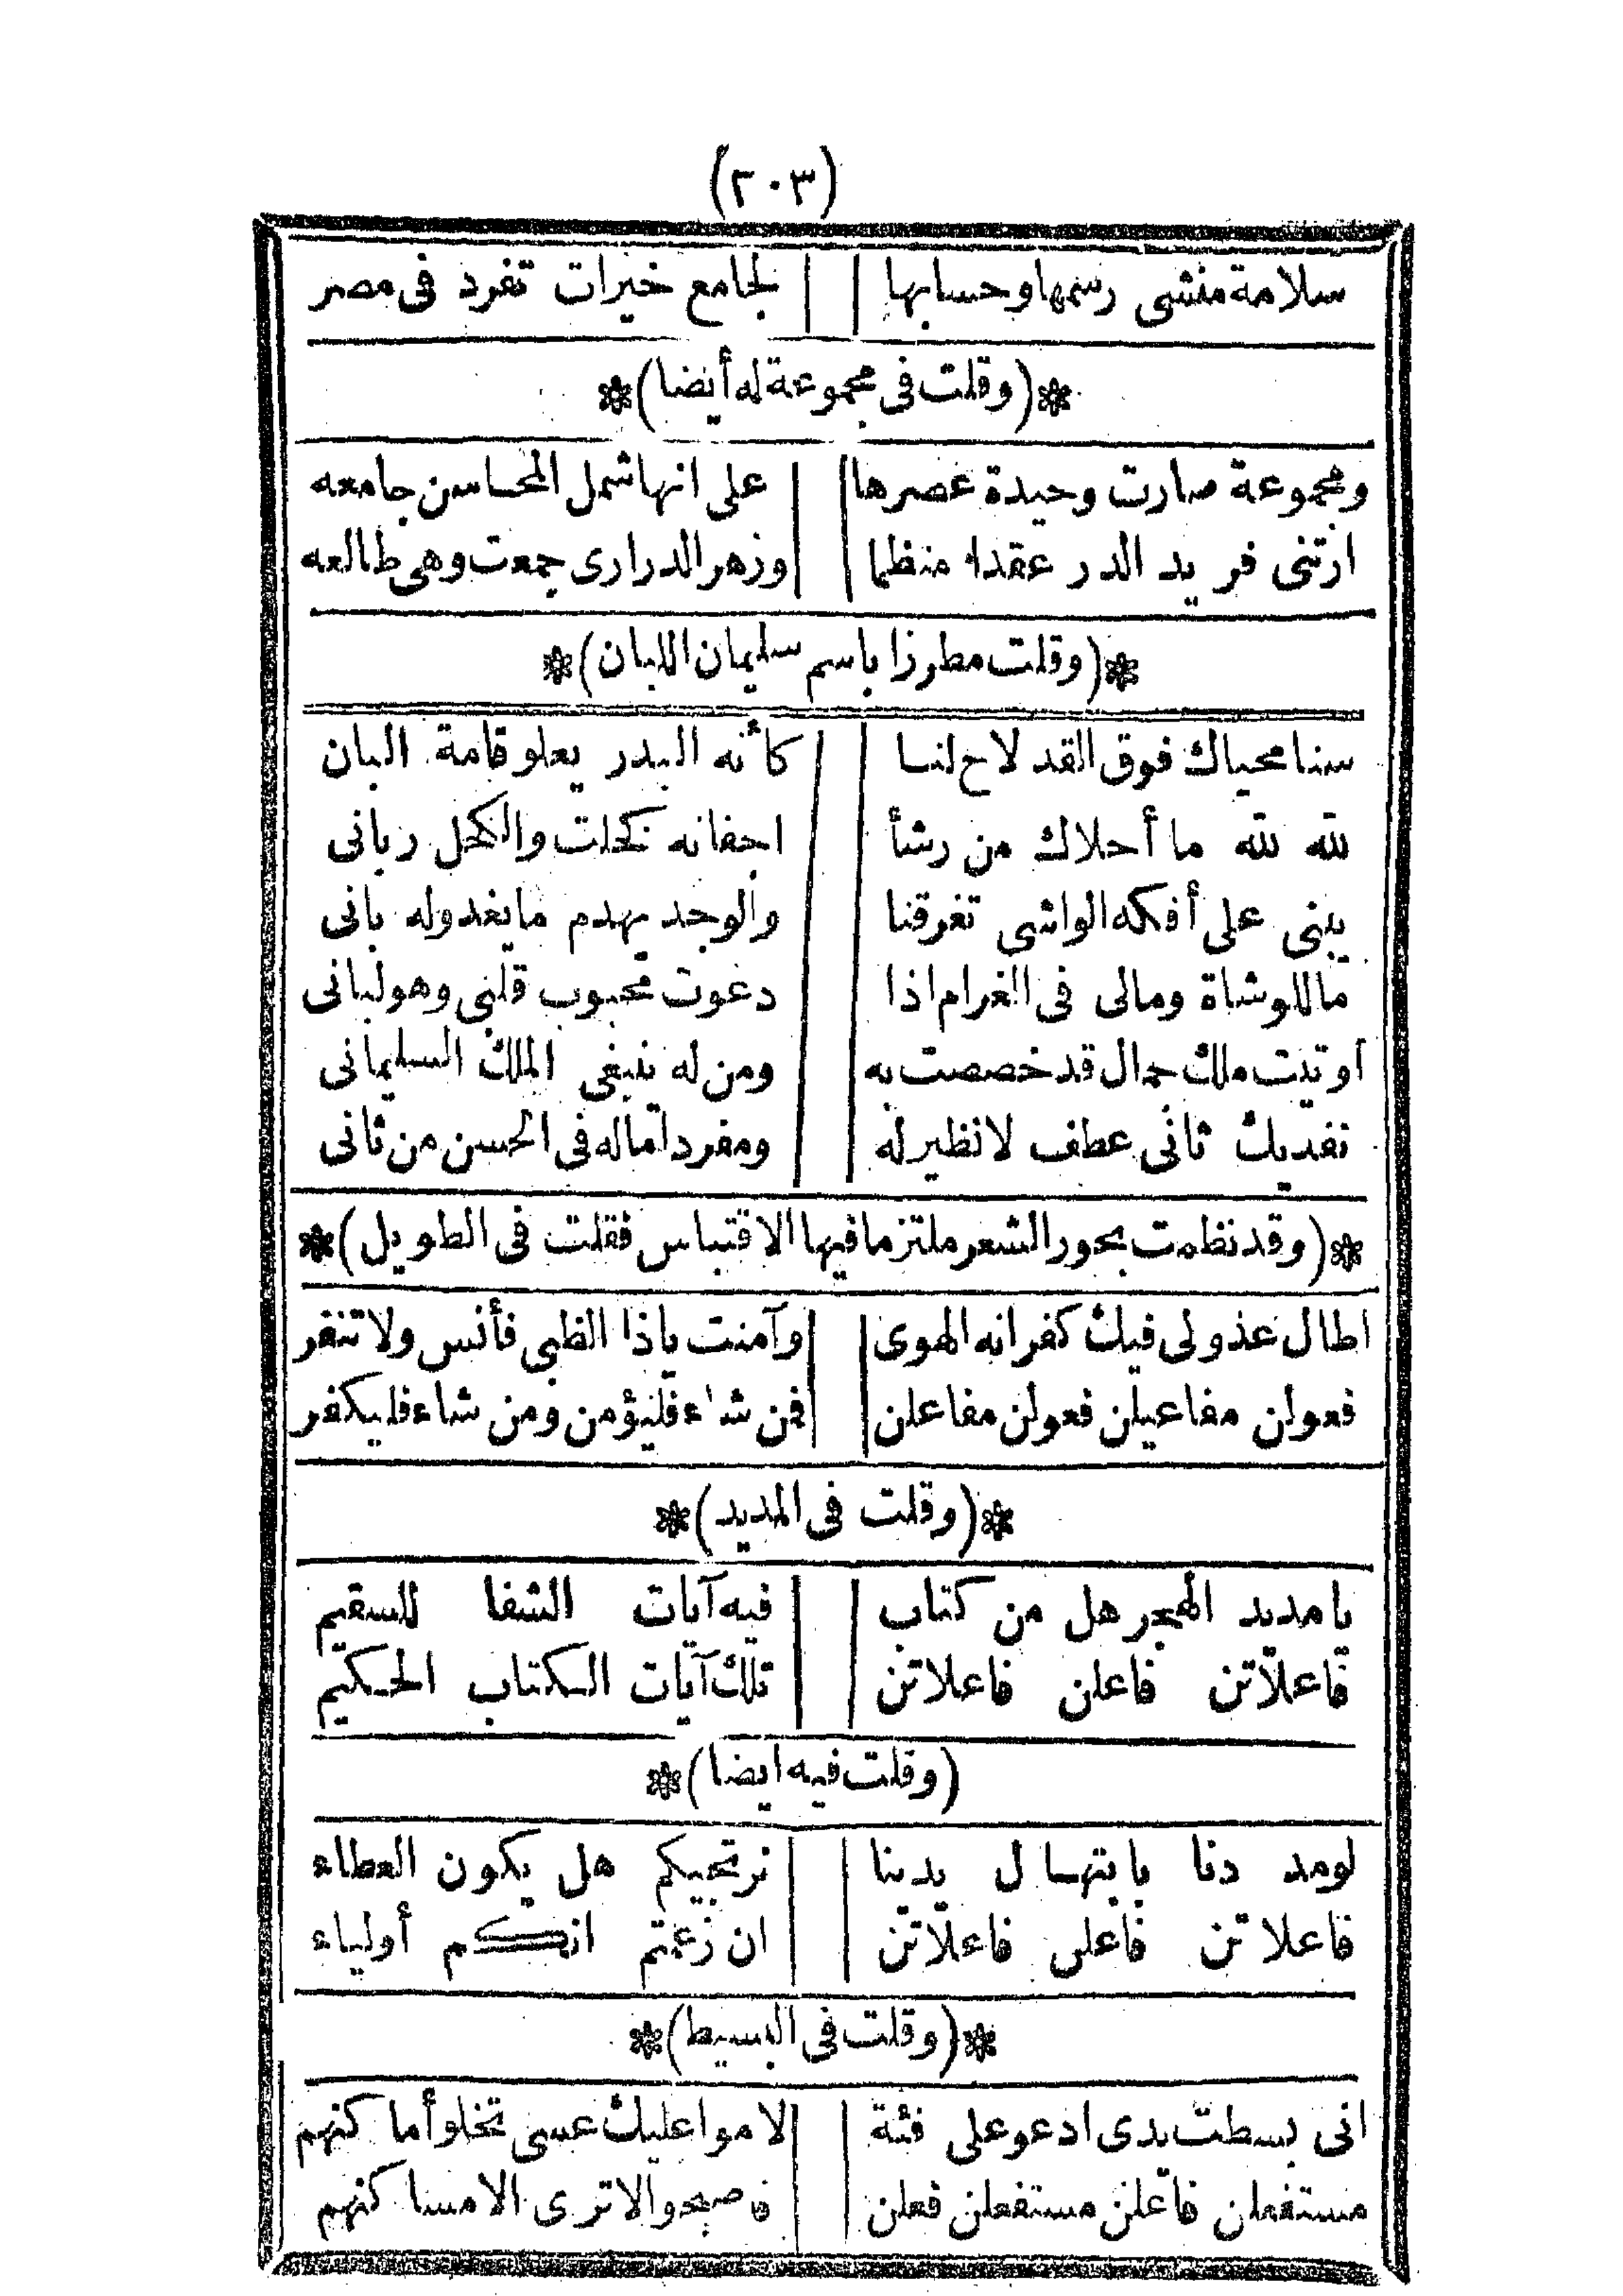 (٢٠٣)
سلامة منشى رسمها وحسابها | | لجامع خيرات تفرد فى مصر
❊(وقلت فى مجموعة له أيضا)❊
ومجموعة صارت وحيدة عصرها | | على انها شمل المحاسن جامعه
ارتنى فريد الدر عقدا منظما | | وزهر الدرارى جمعت وهى طالعه
❊(وقلت مطرزا باسم سليمان اللبان)❊
سنا محياك فوق القد لاح لنا | | كأنه البدر يعلو قامة البان
لله لله ما أحلاك من رشأ | | اجفانه كحلت والكحل ربانى
يبنى على أفكه الواشى تفرقنا | | والوجد يهدم ما يغدو له بانى
ما للوشاة ومالى فى الغرام اذا | | دعوت محبوب قلبى وهو لبانى
اوتيت ملك جمال قد خصصت به | | ومن له ينبغى الملك السليمانى
نفديك ثانى عطف لا نظير له | | ومفردا ماله فى الحسن من ثانى
❊(وقد نظمت بحور الشعر ملتزما فيها الاقتباس فقلت فى الطويل)❊
اطال عذولى فيك كفرانه الهوى | | وآمنت ياذا الظبى فأنس ولا تنفر
فعولن مفاعيلن فعولن مفاعلن | | فمن شاء فليؤمن ومن شاء فليكفر
❊(وقلت فى المديد)❊
يا مديد الهجر هل من كتاب | | فيه آيات الشفا للسقيم
فاعلاتن فاعلن فاعلاتن | | تلك آيات الكتاب الحكيم
(وقلت فيه ايضا)❊
لو مددنا بابتهال يدينا | | نرتجيكم هل يكون العطاء
فاعلاتن فاعلن فاعلاتن | | ان زعمتم انكم أولياء
❊(وقلت فى البسيط)❊
انى بسطت يدى ادعو على فئة | | لاموا عليك عسى تخلو أماكنهم
مستفعلن فاعلن مستفعلن فعلن | | فاصبحوا لا ترى الا مساكنهم